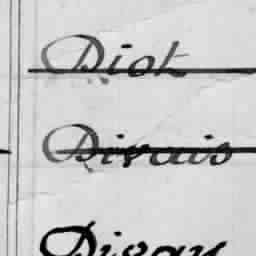 Diot
Divais
Divay